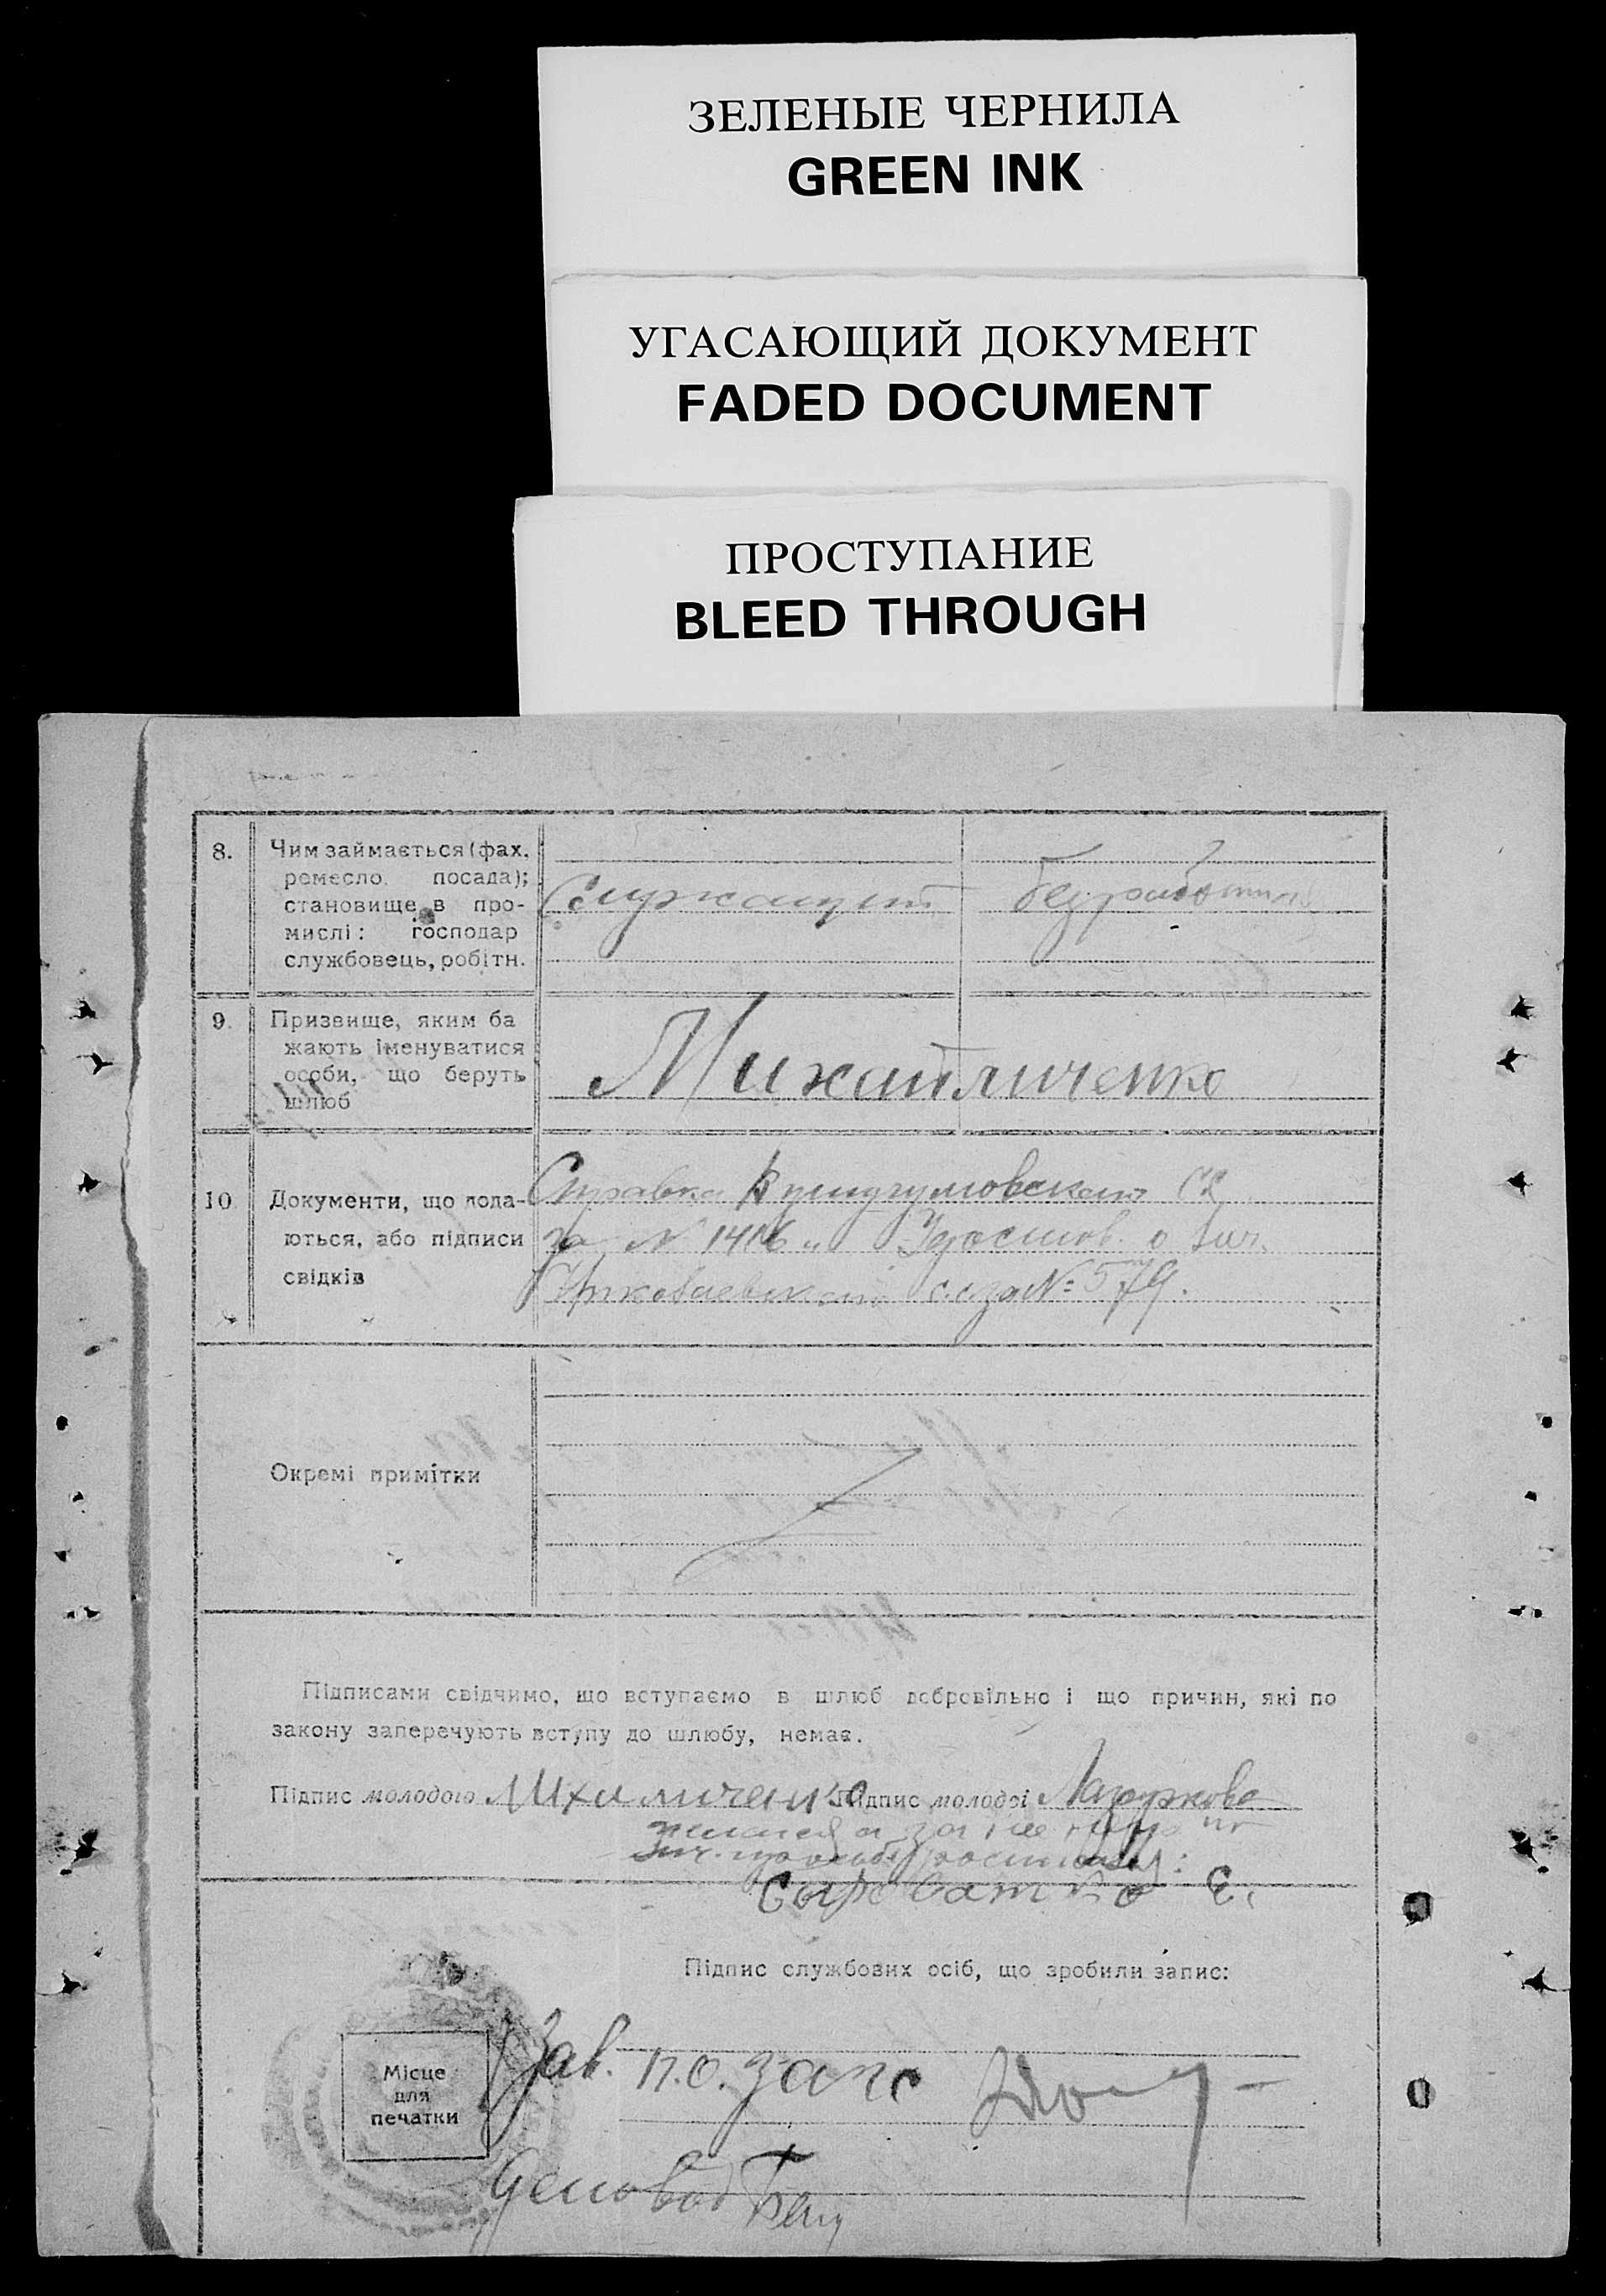 ЗЕЛЕНЫЕ ЧЕРНИЛА
GREEN INK
УГАСАЮЩИЙ ДОКУМЕНТ
FADED DOCUMENT
ПРОСТУПАНИЕ
BLEED THROUGH
8. Чим займається (фах, ремесло, посада); становище в про-
мислі: господар
службовець, робітн.
Служащий
безработная
9. Призвище, яким ба
жають іменуватися
особи, що беруть
шлюб
Михайличенко
10 Документи, що дода-
ються, або підписи
свідків
Справка
за № 1416 Удостов. о лич.
с.с за № 579.
Окремі примітки
Підписами свідчимо, що вступаємо в шлюб добровільно і що причин, які по
закону заперечують вступу до шлюбу, немає.
Підпис молодого Михаличенко Підпис молодої
Сыроватко Е.
Підпис службових осіб, що зробили запис:
Місце
для
печатки
Зав. п.о. загс